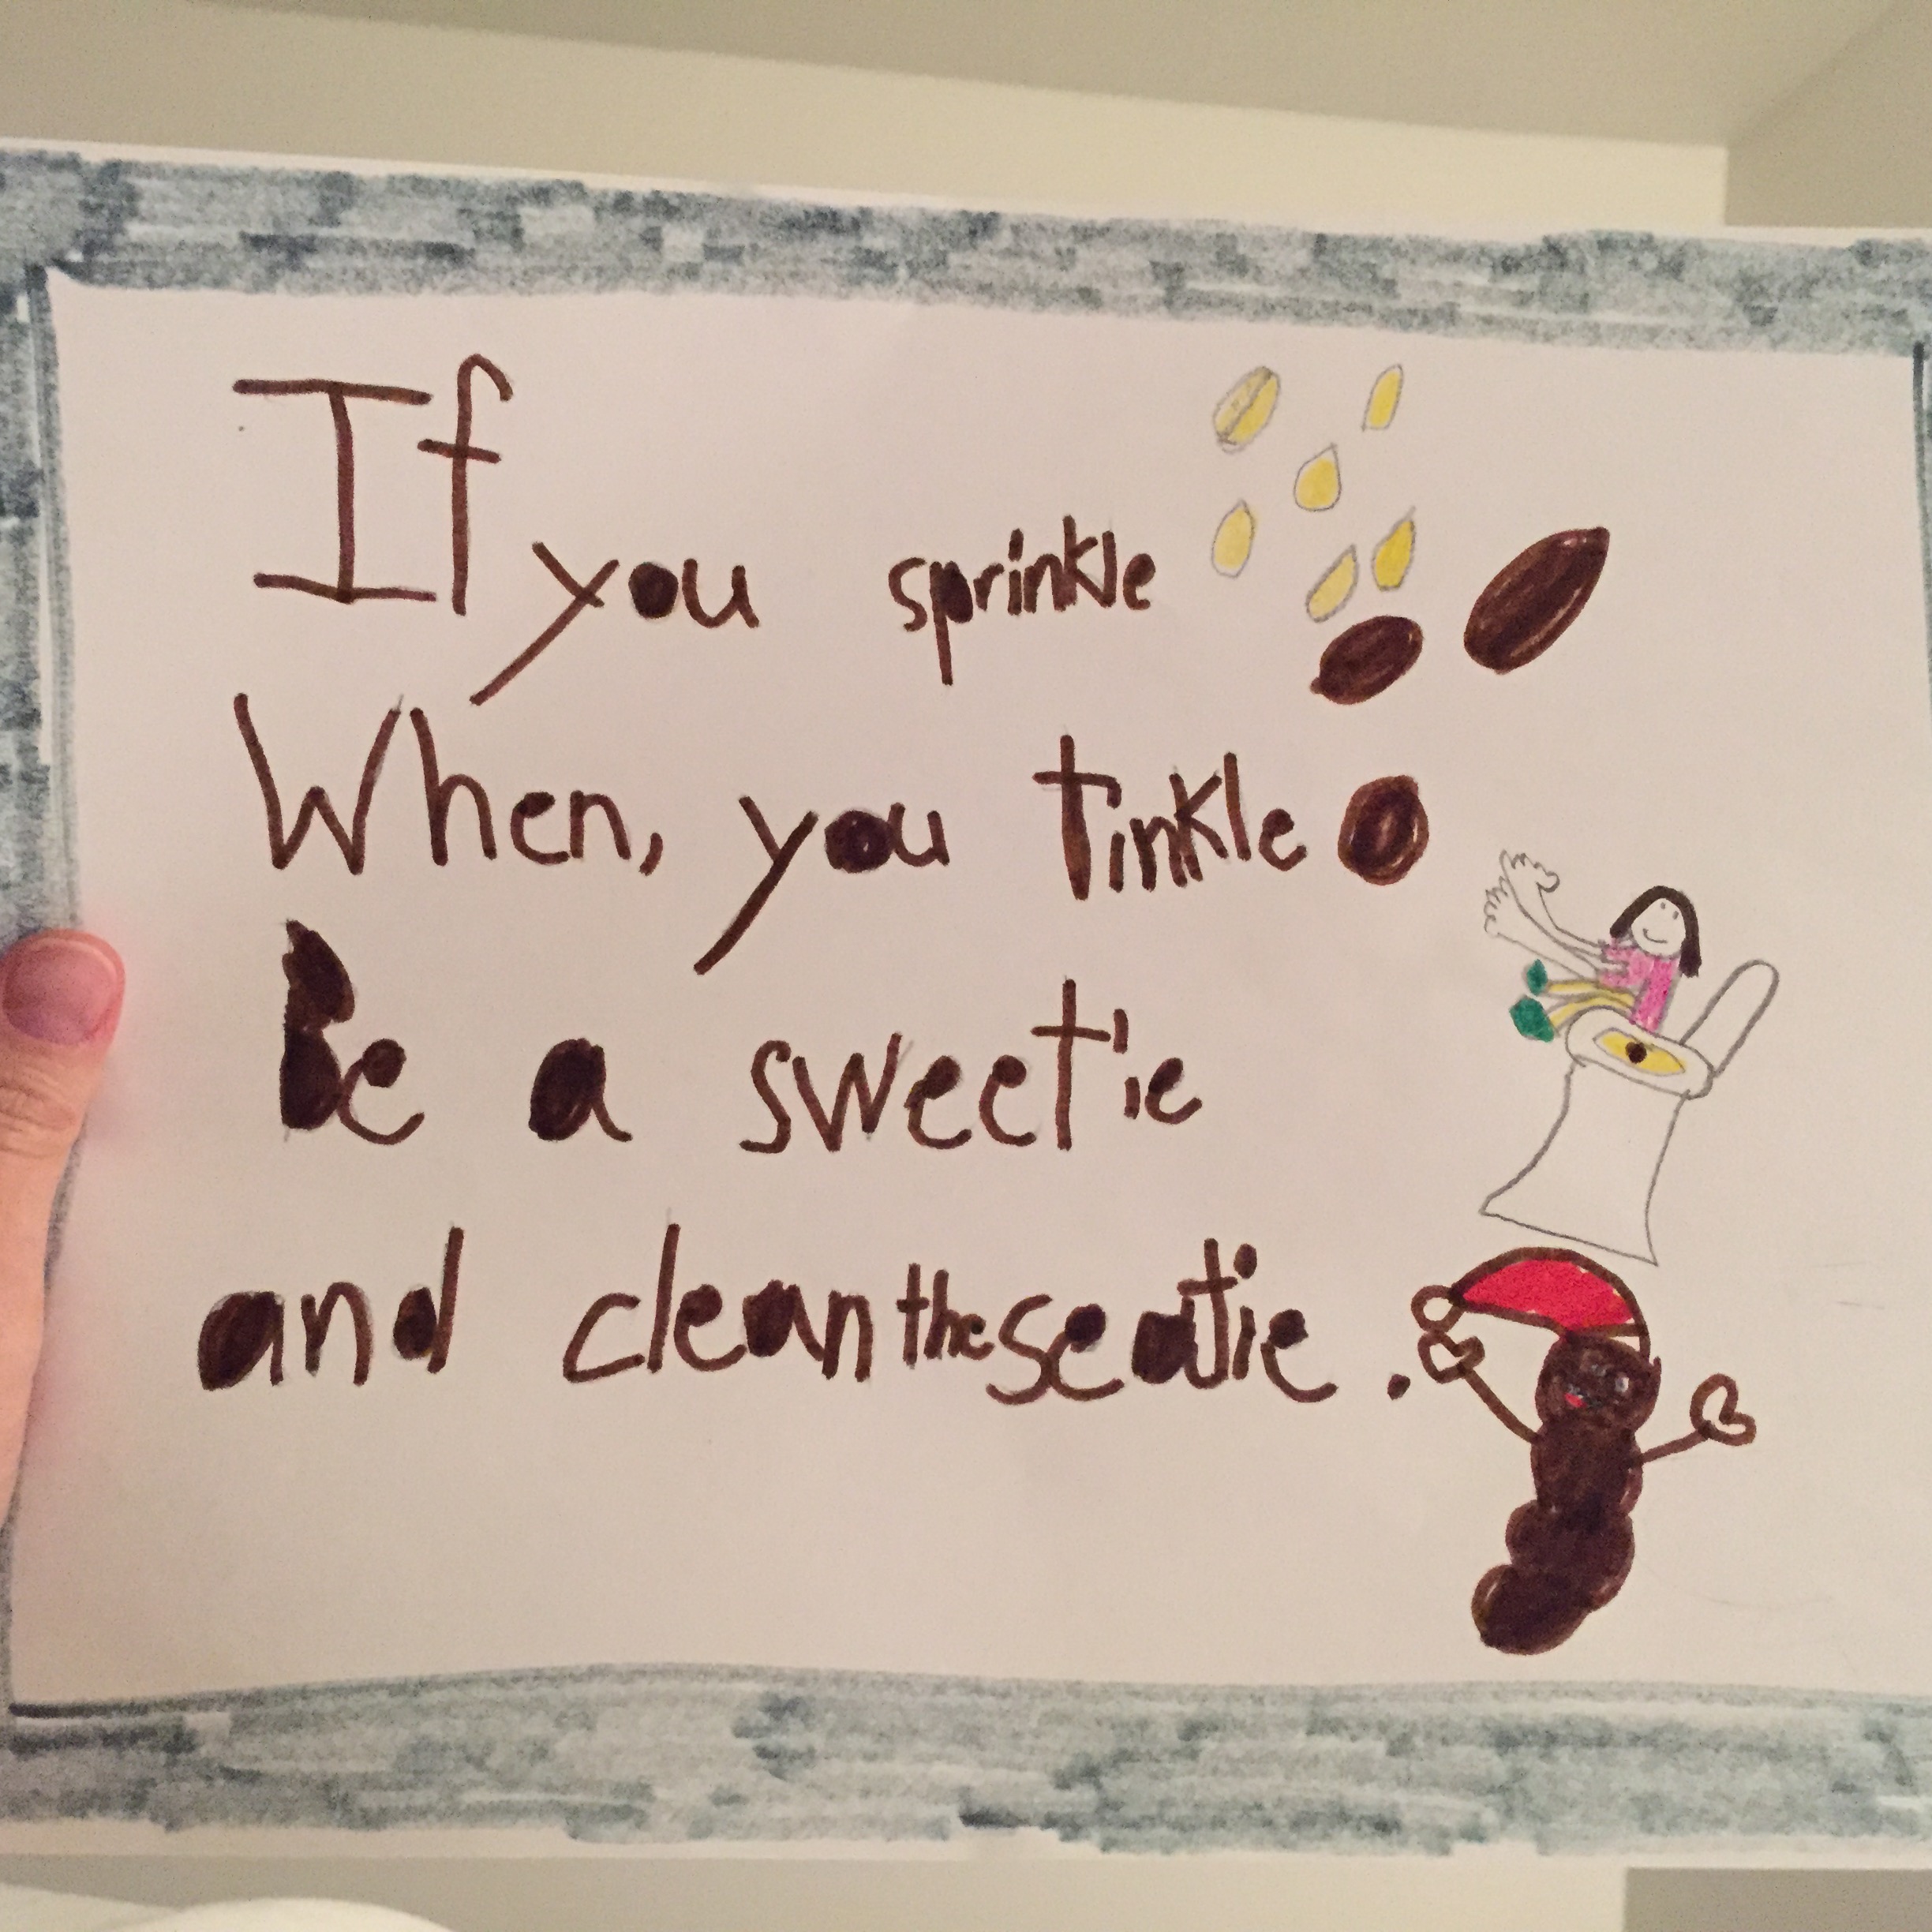 If you sprinkle
When, you tinkle
Be a sweetie
and clean the seatie.